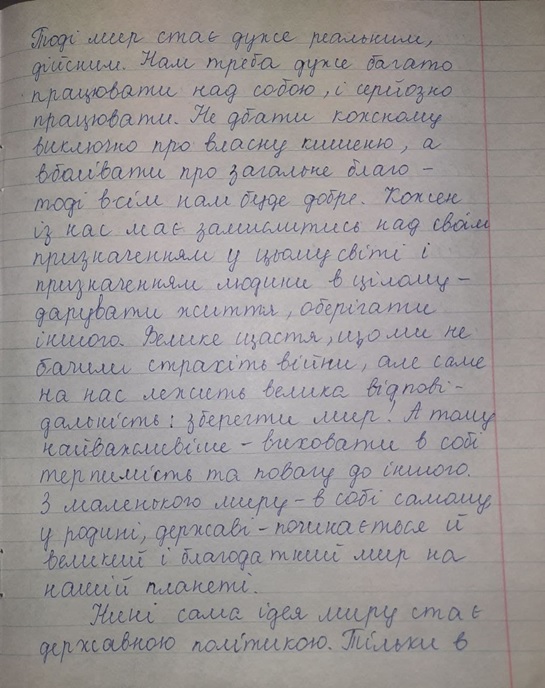 Тоді мир стає дуже реальним,
дійсним. Нам треба дуже багато
працювати над собою, і серйозно
працювати. Не дбати кожному
виключно про власну кишеню, а
вболівати про загальне благо –
тоді всім нам буде добре. Кожен
із нас має замислитись над своїм
призначенням у цьому світі і
призначенням людини в цілому –
дарувати життя, оберігати
іншого. Велике щастя, що ми не
бачили страхіть війни, але саме
на нас лежить велика відпові-
дальність: зберегти мир! А тому
найважливіше – виховати в собі
терпимість та повагу до іншого.
З маленького миру – в собі самому
у родині, державі – починається й
великий і благодатний мир на
нашій планеті.
Нині сама ідея миру стає
державною політикою. Тільки в